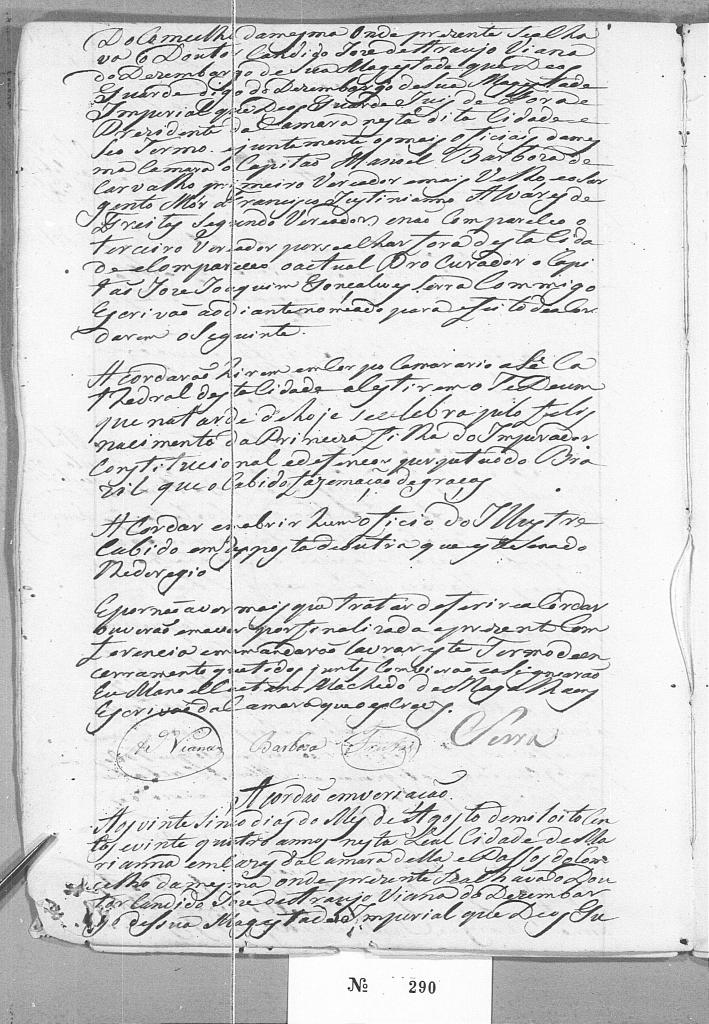 Do Comcelho damesma Onde prezente Se alha
va o Doutor Candido Joze de Araujo Viana
do Dezembargo de Sua Magestade que Deos
Guarde digo do Dezembargo de Sua Magestade
Imperial que Deos Guarde Juis de Fora e
Prezidente da Camara nesta dita Cidade e
Seo Termo e juntamente os mais oficiais da mes
ma Camara o Capitão Manoel Barboza de
Carvalho primeiro Vereador emais Velho, eo Sar
gento Mór Francisco Justiniano Alvares de
Freitas Segundo Vereador, enão Compareceo o
terceiro Vereador por se alhar fora desta Cida
de eCompareceo oactual Procurador o Capi
tão Joze Joaquim Gonçalves Serra Commigo
Escrivão aodiante nomeado para efeito de acor
darem o Seguinte.
Acordarão hirem em Corpo Camarario a Sé Ca
thedral desta Cidade aCistirem o TeDeum
que natarde dehoje Secelebra pelo feliz
nacimento da Princeza Filha do Imperador
Constitucional edefençor perpetuo do Bra
zil que o Cabido faz em acão degraças
Acordar em abrir hum oficio do Illustre
Cabido em Resposta deoutra que este Senado
lhe deregio
Epornão aver mais que tratar deferir e aCordar
ouverão em aver por finalizada e prezente Com
ferencia em mandarão lavrar este Termo de en
cerramento que todos juntos Comvierão easignarão
Eu Manoel Caetano Machado de Magalhaens
Escrivão da Camara que o escrevy.
Ar.º Viana Barboza Freitas Serra
Acordão em veriação
Aos vinte Sinco dias do Mes de Agosto de mil oito Cen
tos e vinte quatro annos nesta Leal Cidade de Ma
rianna em Cazas da Camara della e Passos do Con
celho damesma onde prezente Se alhava o Dou
tor Candido Joze de Araujo Viana do Dezembar
go de Sua Magestade Imperial que Deos Gu
Nº 290